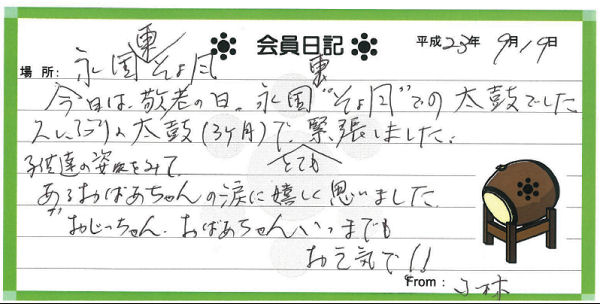 会員日記
平成23年 9月19日
場所: 永国東そよ風
今日は、敬老の日。永国東"そよ風"での太鼓でした。
久しぶりの太鼓(3ヶ月)で、とても緊張しました。
子供達の姿をみて、
あるおばあちゃんの涙に嬉しく思いました。
おじいちゃん、おばあちゃんいつまでも
お元気で!!
From: 小林